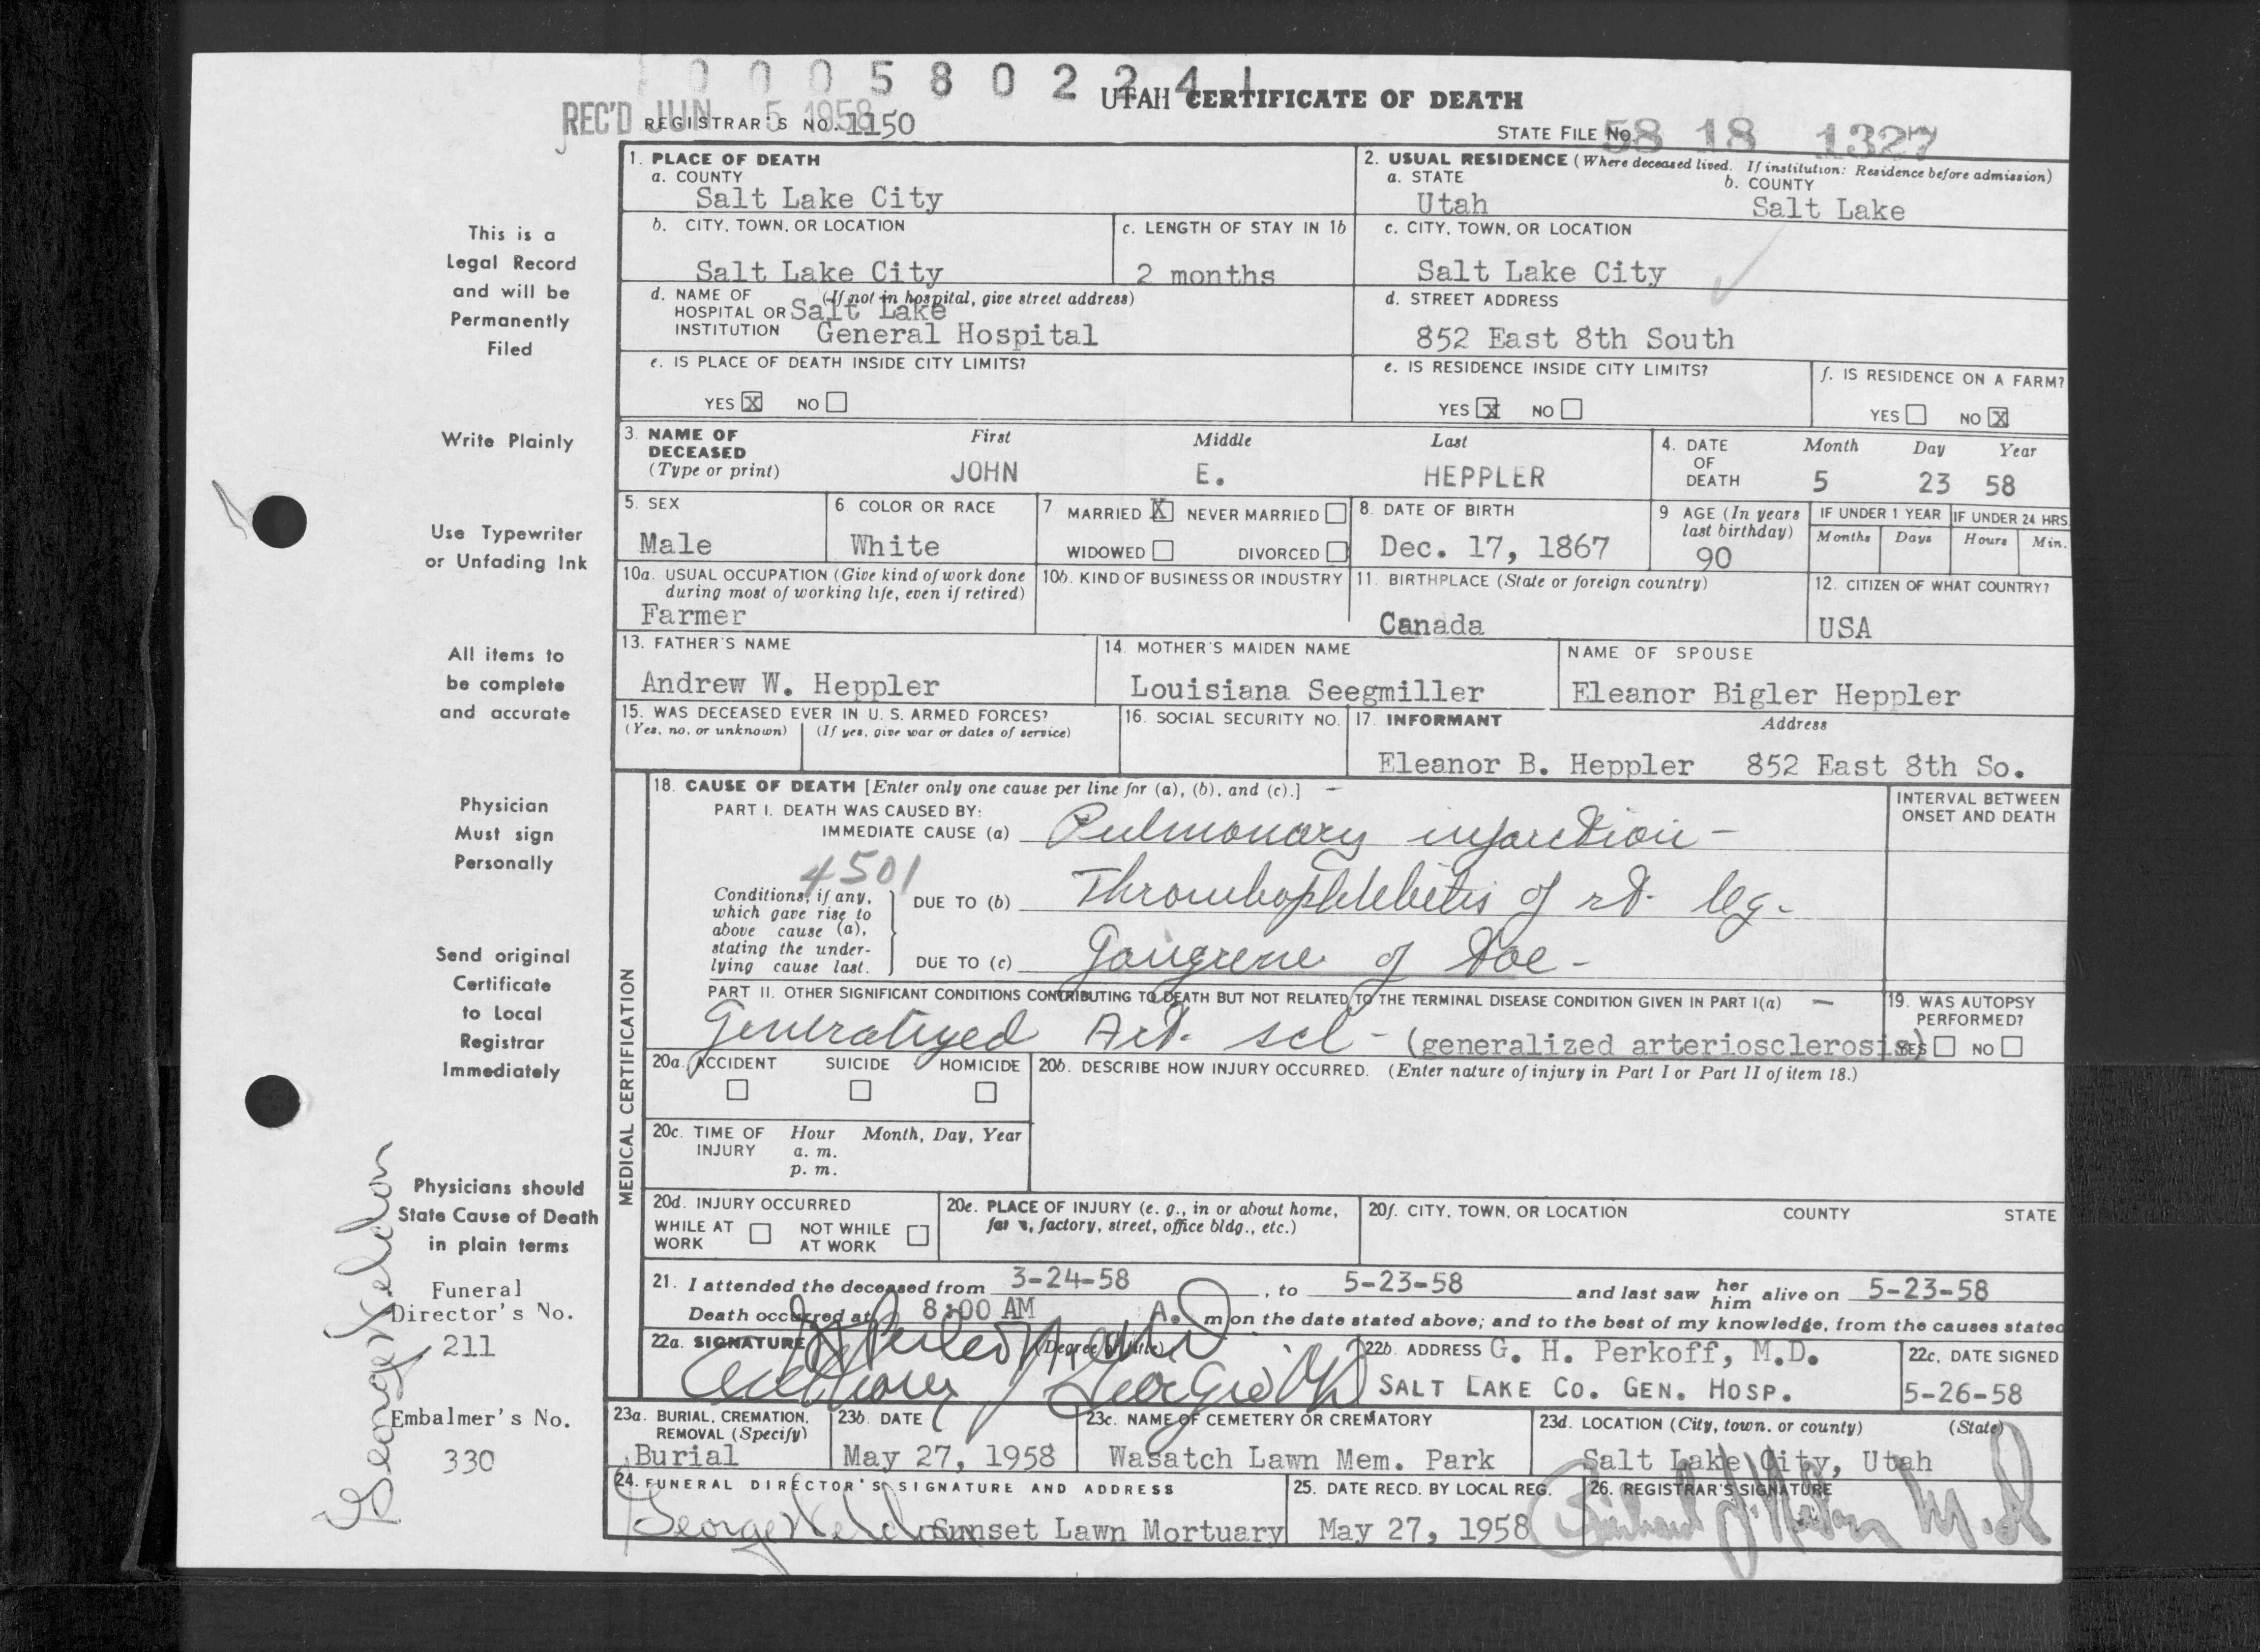 0 0 0 5 8 0 2 2 4 1
UTAH CERTIFICATE OF DEATH
REC'D JUN 5 1958
REGISTRAR'S NO. 1150
STATE FILE No. 58 18 1327
This is a
Legal Record
and will be
Permanently
Filed
Write Plainly
Use Typewriter
or Unfading Ink
All items to
be complete
and accurate
Physician
Must sign
Personally
Send original
Certificate
to Local
Registrar
Immediately
Physicians should
State Cause of Death
in plain terms
Funeral
Director's No.
211
Embalmer's No.
330
1. PLACE OF DEATH
a. COUNTY
Salt Lake City
b. CITY, TOWN, OR LOCATION
Salt Lake City
c. LENGTH OF STAY IN 1b
2 months
d. NAME OF (If not in hospital, give street address)
HOSPITAL OR Salt Lake
INSTITUTION General Hospital
e. IS PLACE OF DEATH INSIDE CITY LIMITS?
YES X NO
2. USUAL RESIDENCE (Where deceased lived. If institution: Residence before admission)
a. STATE
Utah
b. COUNTY
Salt Lake
c. CITY, TOWN, OR LOCATION
Salt Lake City
d. STREET ADDRESS
852 East 8th South
e. IS RESIDENCE INSIDE CITY LIMITS?
YES X NO
f. IS RESIDENCE ON A FARM?
YES NO X
3. NAME OF DECEASED
(Type or print)
First Middle Last
JOHN E. HEPPLER
4. DATE OF DEATH
Month Day Year
5 23 58
5. SEX
Male
6 COLOR OR RACE
White
7 MARRIED X NEVER MARRIED
WIDOWED DIVORCED
8. DATE OF BIRTH
Dec. 17, 1867
9 AGE (In years last birthday)
90
IF UNDER 1 YEAR
Months Days
IF UNDER 24 HRS
Hours Min.
10a. USUAL OCCUPATION (Give kind of work done during most of working life, even if retired)
Farmer
10b. KIND OF BUSINESS OR INDUSTRY
11. BIRTHPLACE (State or foreign country)
Canada
12. CITIZEN OF WHAT COUNTRY?
USA
13. FATHER'S NAME
Andrew W. Heppler
14. MOTHER'S MAIDEN NAME
Louisiana Seegmiller
NAME OF SPOUSE
Eleanor Bigler Heppler
15. WAS DECEASED EVER IN U. S. ARMED FORCES?
(Yes, no, or unknown) (If yes, give war or dates of service)
16. SOCIAL SECURITY NO.
17. INFORMANT Address
Eleanor B. Heppler 852 East 8th So.
MEDICAL CERTIFICATION
18. CAUSE OF DEATH [Enter only one cause per line for (a), (b), and (c).]
PART I. DEATH WAS CAUSED BY:
IMMEDIATE CAUSE (a) Pulmonary infarction -
4501
Conditions, if any,
which gave rise to
above cause (a),
stating the under-
lying cause last.
DUE TO (b) Thrombophlebitis of rt. leg.
DUE TO (c) Gangrene of toe -
INTERVAL BETWEEN
ONSET AND DEATH
PART II. OTHER SIGNIFICANT CONDITIONS CONTRIBUTING TO DEATH BUT NOT RELATED TO THE TERMINAL DISEASE CONDITION GIVEN IN PART I(a)
Generalized Art. scl - (generalized arteriosclerosis)
19. WAS AUTOPSY PERFORMED?
YES NO
20a. ACCIDENT SUICIDE HOMICIDE
20b. DESCRIBE HOW INJURY OCCURRED. (Enter nature of injury in Part I or Part II of item 18.)
20c. TIME OF INJURY Hour Month, Day, Year
a. m.
p. m.
20d. INJURY OCCURRED
WHILE AT WORK NOT WHILE AT WORK
20e. PLACE OF INJURY (e. g., in or about home,
farm, factory, street, office bldg., etc.)
20f. CITY, TOWN, OR LOCATION COUNTY STATE
21. I attended the deceased from 3-24-58, to 5-23-58 and last saw her him alive on 5-23-58
Death occurred at 8:00 AM A. m on the date stated above; and to the best of my knowledge, from the causes stated
22a. SIGNATURE (Degree or title)
22b. ADDRESS G. H. Perkoff, M.D.
SALT LAKE CO. GEN. HOSP.
22c. DATE SIGNED
5-26-58
23a. BURIAL, CREMATION,
REMOVAL (Specify)
Burial
23b. DATE
May 27, 1958
23c. NAME OF CEMETERY OR CREMATORY
Wasatch Lawn Mem. Park
23d. LOCATION (City, town, or county) (State)
Salt Lake City, Utah
24. FUNERAL DIRECTOR'S SIGNATURE AND ADDRESS
Sunset Lawn Mortuary
25. DATE RECD. BY LOCAL REG.
May 27, 1958
26. REGISTRAR'S SIGNATURE
M.D